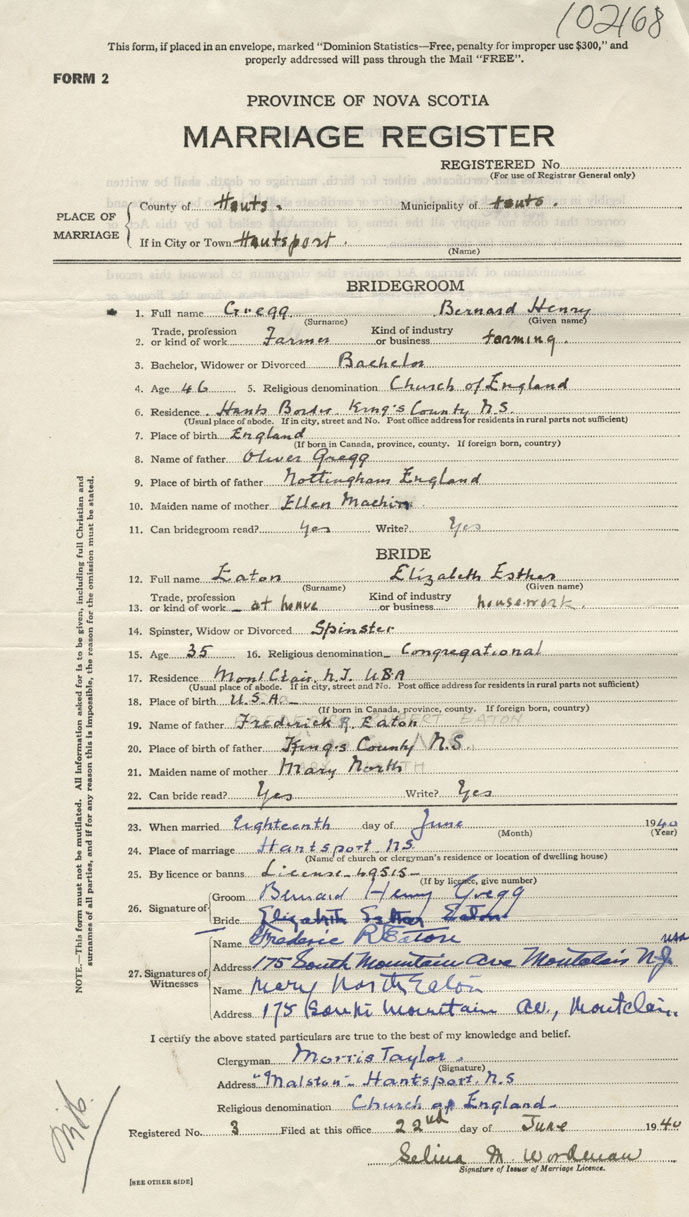 102168
This form, if placed in an envelope, marked "Dominion Statistics—Free, penalty for improper use $300," and
properly addressed will pass through the Mail "FREE".
FORM 2
PROVINCE OF NOVA SCOTIA
MARRIAGE REGISTER
REGISTERED No.
(For use of Registrar General only)
PLACE OF MARRIAGE
County of Hants. Municipality of Hants.
If in City or Town Hantsport.
(Name)
BRIDEGROOM
1. Full name Gregg Bernard Henry
(Surname) (Given name)
2. Trade, profession or kind of work Farmer Kind of industry or business farming.
3. Bachelor, Widower or Divorced Bachelor
4. Age 46 5. Religious denomination Church of England
6. Residence Hants Border King's County N.S.
(Usual place of abode. If in city, street and No. Post office address for residents in rural parts not sufficient)
7. Place of birth England
(If born in Canada, province, county. If foreign born, country)
8. Name of father Oliver Gregg
9. Place of birth of father Nottingham England
10. Maiden name of mother Ellen Machin
11. Can bridegroom read? Yes Write? Yes
BRIDE
12. Full name Eaton Elizabeth Esther
(Surname) (Given name)
13. Trade, profession or kind of work at home Kind of industry or business housework.
14. Spinster, Widow or Divorced Spinster
15. Age 35 16. Religious denomination Congregational
17. Residence Mont Clair. N.J. USA
(Usual place of abode. If in city, street and No. Post office address for residents in rural parts not sufficient)
18. Place of birth U.S.A.
(If born in Canada, province, county. If foreign born, country)
19. Name of father Frederick R. Eaton
20. Place of birth of father King's County N.S.
21. Maiden name of mother Mary North
22. Can bride read? Yes Write? Yes
23. When married Eighteenth day of June 1940
(Month) (Year)
24. Place of marriage Hantsport NS
(Name of church or clergyman's residence or location of dwelling house)
25. By licence or banns License 49515
(If by licence, give number)
26. Signature of Groom Bernard Henry Gregg
Bride Elizabeth Esther Eaton
27. Signatures of Witnesses
Name Frederic R Eaton
Address 175 South Mountain Ave Montclair N.J. USA
Name Mary North Eaton
Address 175 South Mountain Av., Montclair
I certify the above stated particulars are true to the best of my knowledge and belief.
Clergyman Morris Taylor.
(Signature)
Address "Malston" Hantsport. N.S
Religious denomination Church of England
Registered No. 3 Filed at this office 22nd day of June 1940
Selina M. Wordman
Signature of Issuer of Marriage Licence.
[SEE OTHER SIDE]
NOTE.—This form must not be mutilated. All information asked for is to be given, including full Christian and
surnames of all parties, and if for any reason this is impossible, the reason for the omission must be stated.